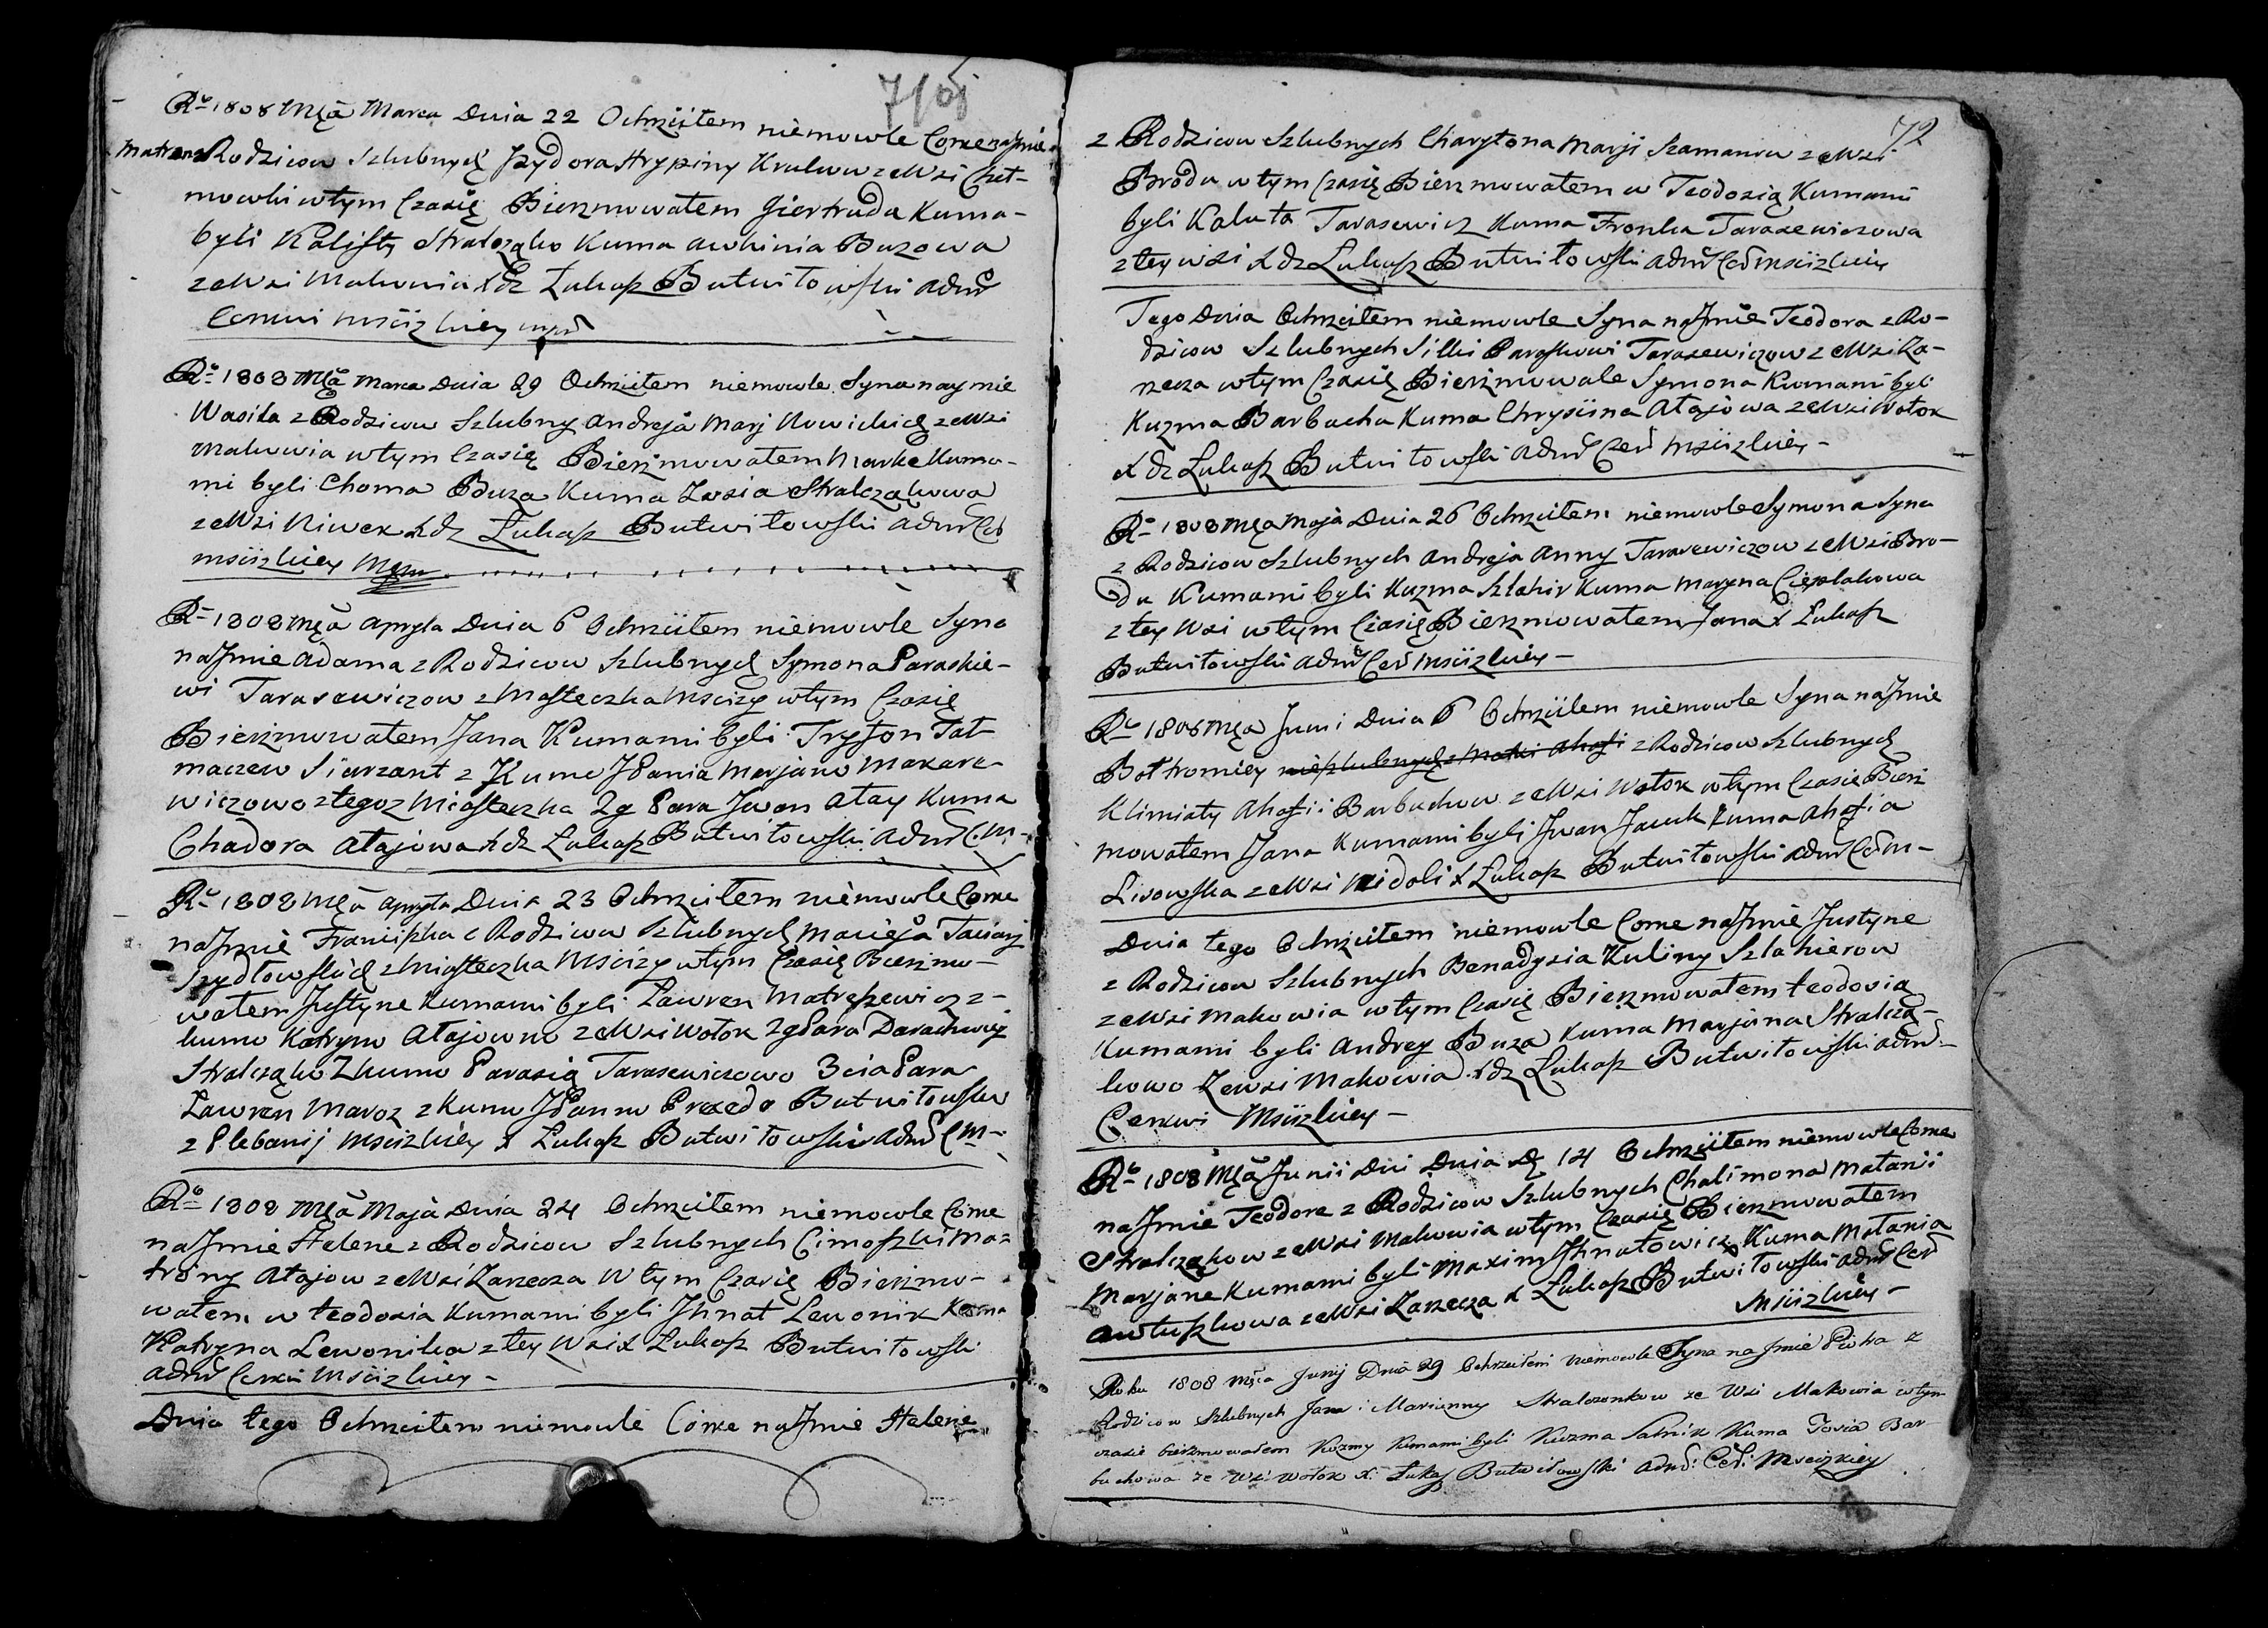 71
Ro 1808 Mca Marca Dnia 22 Ochrzciłem niemowle Corke na Jmie
Matrona Rodzicow Szlubnych Jzydora Hrypiny Krulow ze Wsi
mowki wtym Czasię Bierzmowałem Giertruda Kuma-
byli Kalisty Stralcząko Kuma Awhinia Buzowa
ze Wsi Makowia Xdz Łukasz Butwiłowski Admr
Cerkwi Mscizkiey
Ro 1808 Mca Marca Dnia 29 Ochrzciłem niemowle Syna naymie
Wasila z Rodzicow Szlubny Andreja Marj Nowickich ze Wsi
Makowia wtym Czasię Bierzmowałem Marke Kuma-
mi byli Choma Buza Kuma Zosia Stralcząkowa
ze Wsi Niwek Xdz Łukasz Butwiłowski Admr Cer
Mscizkiey
Ro 1808 Mca Apryla Dnia 6 Ochrzciłem niemowle Syna
na Jmie Adama z Rodzicow Szlubnych Symona Paraskie-
wi Tarasewiczow z Masteczka Mscizy wtym Czasię
Bierzmowałem Jana Kumami byli Tryfon Tał-
maczew Sierzant z Kumo JPania Marjano Makare-
wiczowo z tegoz Miasteczka 2g Para Jwan Ałay Kuma
Chadora Ałajowa Xdz Łukasz Butwiłowski Admr C. M-
Ro 1808 Mca Apryla Dnia 23 Ochrzciłem niemowle Corke
na Jmie Franciszka z Rodzicow Szlubnych Macieja Taciany
Szydłowskich z Miasteczka Mscizy wtym Czasię Bierzmo-
wałem Justyne Kumami byli Ławren Matreszewicz z-
kumo Katryno Ałajowno ze Wsi Wołok 2g Para Darachwiey
Stralcząko Zkumo Parasią Tarasewiczowo 3cia Para
Ławren Maroz z Kumo JPanno Praxeda Butwiłowsko
z Plebanij Mscizkiey X Łukasz Butwiłowski Admr C M-
Ro 1808 Mca Maja Dnia 24 Ochrzciłem niemowle Corke
na Jmie Helene z Rodzicow Szlubnych Cimoszki Ma-
trony Ałajow ze Wsi Zarzecza Wtym Czasię Bierzmo-
wałem w teodosia Kumami byli Jhnat Lewonik Kuma
Katryna Lewonika z tey Wsi X Łukasz Butwiłowski
Admr Cerkwi Mscizkiey-
Dnia tego Ochrzciłem niemowle Corke na Jmie Halenę
72
z Rodzicow Szlubnych Charytona Marji Szamanow ze Wsi
Brodu wtym Czasię Bierzmowałem w Teodosią Kumami
byli Kaluta Tarasewicz Kuma Fronka Tarasewiczowa
z tey wsi Xdz Łukasz Butwiłowski Admr Cer Mscizkiey
Tego Dnia Ochrzciłem niemowle Syna na Jmie Teodora z Ro-
dzicow Szlubnych Silki Paraskowi Tarasewiczow ze Wsi Za-
rzecza wtym Czasię Bierzmowałe Symona Kumami byli
Kuzma Barbacha Kuma Chrysiina Ałajowa ze Wsi Wołok
Xdz Łukasz Butwiłowski Admr Cer Mscizkiey-
Ro 1808 Mca Maja Dnia 26 Ochrzciłem niemowle Symona Syna
z Rodzicow Szlubnych Andreja Anny Tarasewiczow ze Wsi Bro-
du Kumami byli Kuzma Szłahir Kuma Maryna Cieplakowa
z tey Wsi wtym Czasię Bierzmowałem Jana X Łukasz
Butwiłowski Admr Cer Mscizkiey-
Ro 1808 Mca Juni Dnia 6 Ochrzciłem niemowle Syna na Jmie
Bołtromiey nieszlubnych z Matki Ahafi z Rodzicow Szlubnych
Klimiaty Ahafii Barbachow ze Wsi Wołok wtym Czasię Bierz
mowałem Jana Kumami byli Jwan Jacuk Kuma Ahafia
Lisowska ze Wsi Nidoli X Łukasz Butwiłowski Admr Cer M-
Dnia tego Ochrzciłem niemowle Corke na Jmie Justyne
z Rodzicow Szlubnych Benadysia Kuliny Szlahierow
ze Wsi Makowia wtym Czasię Bierzmowałem teodosią
Kumami byli Andrey Buza Kuma Marjana Stralczą-
kowo Ze wsi Makowia Xdz Łukasz Butwiłowski Admr-
Cerkwi Mscizkiey-
Ro 1808 Mca Junii Dni Dnia 14 Ochrzciłem niemowle Corke
na Jmie Teodore z Rodzicow Szlubnych Chalimona Małanii
Stralcząkow ze Wsi Makowia wtym Czasię Bierzmowałem
Marjane Kumami byli Maxim Jhnatowicz Kuma Małania
Awtuszkowa ze Wsi Zarzecza X Łukasz Butwiłowski Admr Cer
Mscizkiey-
Roku 1808 Mca Junij Dnia 29 Ochrzciłem niemowle Syna na Jmie Piotra z
Rodzicow Szlubnych Jana i Marianny Stralczonkow ze Wsi Makowia wtym
czasie bierzmowałem Kuzmy Kumami byli Kuzma Salnik Kuma Zosia Bar-
buchowa ze Wsi Wołok X. Łukasz Butwiłowski Admr: Cer: Mscizkiey